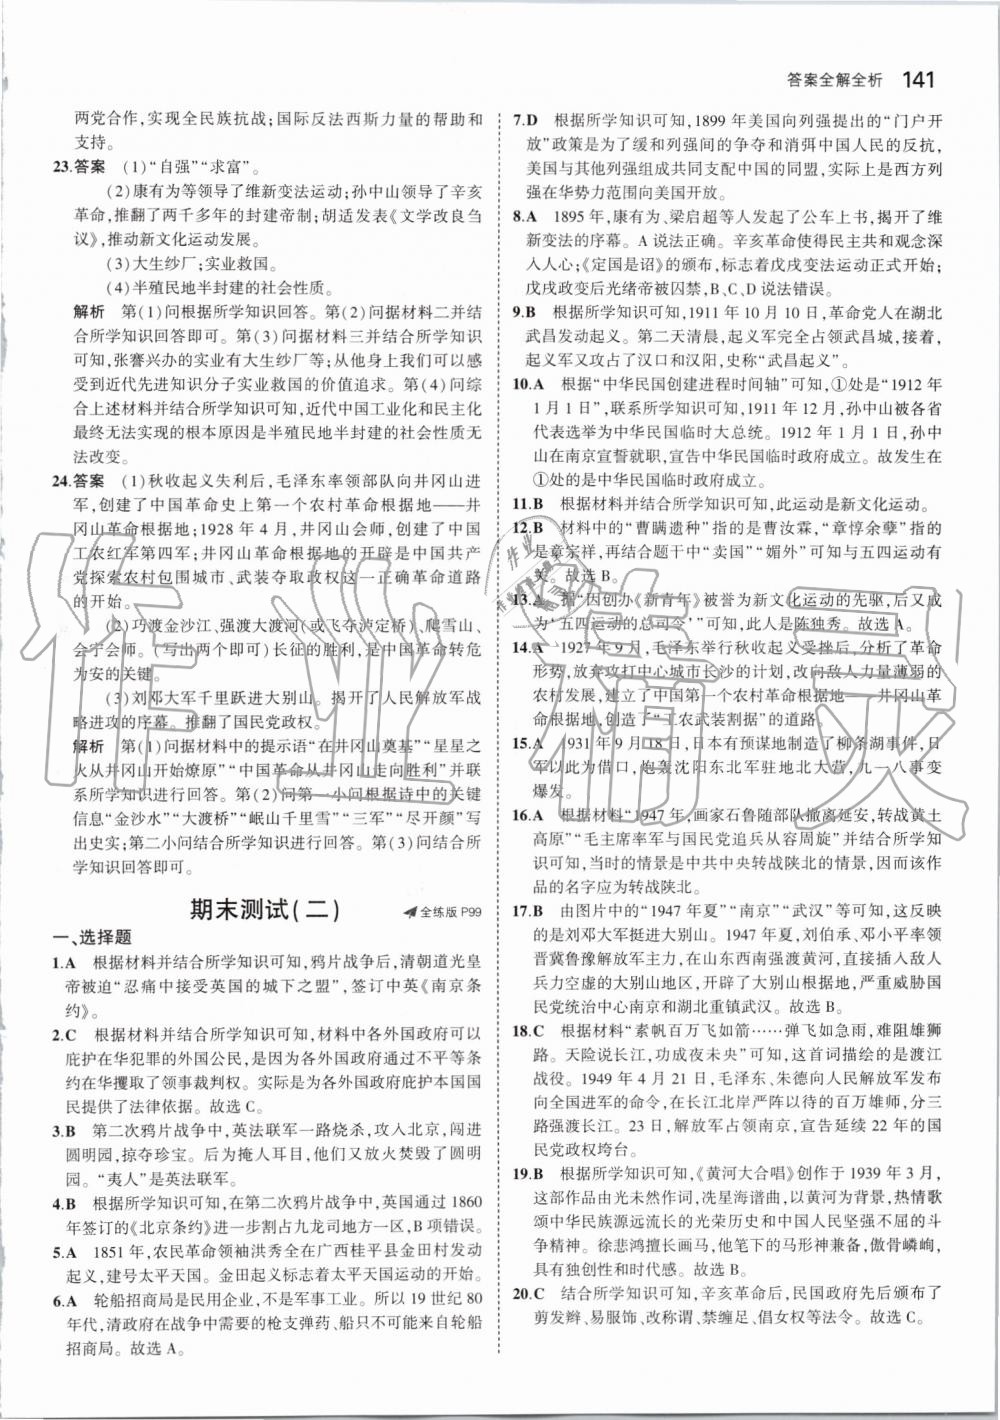 答案全解全析 141
两党合作,实现全民族抗战;国际反法西斯力量的帮助和
支持。
23.答案 (1)“自强”“求富”。
(2)康有为等领导了维新变法运动;孙中山领导了辛亥
革命,推翻了两千多年的封建帝制;胡适发表《文学改良刍
议》,推动新文化运动发展。
(3)大生纱厂;实业救国。
(4)半殖民地半封建的社会性质。
解析 第(1)问根据所学知识回答。第(2)问据材料二并结
合所学知识回答即可。第(3)问据材料三并结合所学知识
可知,张謇兴办的实业有大生纱厂等;从他身上我们可以感
受到近代先进知识分子实业救国的价值追求。第(4)问综
合上述材料并结合所学知识可知,近代中国工业化和民主化
最终无法实现的根本原因是半殖民地半封建的社会性质无
法改变。
24.答案 (1)秋收起义失利后,毛泽东率领部队向井冈山进
军,创建了中国革命史上第一个农村革命根据地——井
冈山革命根据地;1928 年 4 月,井冈山会师,创建了中国
工农红军第四军;井冈山革命根据地的开辟是中国共产
党探索农村包围城市、武装夺取政权这一正确革命道路
的开始。
(2)巧渡金沙江、强渡大渡河(或飞夺泸定桥)、爬雪山、
会宁会师。(写出两个即可)长征的胜利,是中国革命转危
为安的关键。
(3)刘邓大军千里跃进大别山。揭开了人民解放军战
略进攻的序幕。推翻了国民党政权。
解析 第(1)问据材料中的提示语“在井冈山奠基”“星星之
火从井冈山开始燎原”“中国革命从井冈山走向胜利”并联
系所学知识进行回答。第(2)问第一小问根据诗中的关键
信息“金沙水”“大渡桥”“岷山千里雪”“三军”“尽开颜”写
出史实;第二小问结合所学知识进行回答。第(3)问结合所
学知识回答即可。
期末测试(二) 全练版 P99
一、选择题
1.A 根据材料并结合所学知识可知,鸦片战争后,清朝道光皇
帝被迫“忍痛中接受英国的城下之盟”,签订中英《南京条
约》。
2.C 根据材料并结合所学知识可知,材料中各外国政府可以
庇护在华犯罪的外国公民,是因为各外国政府通过不平等条
约在华攫取了领事裁判权。实际是为各外国政府庇护本国国
民提供了法律依据。故选 C。
3.B 第二次鸦片战争中,英法联军一路烧杀,攻入北京,闯进
圆明园,掠夺珍宝。后为掩人耳目,他们又放火焚毁了圆明
园。“夷人”是英法联军。
4.B 根据所学知识可知,在第二次鸦片战争中,英国通过 1860
年签订的《北京条约》进一步割占九龙司地方一区,B 项错误。
5.A 1851 年,农民革命领袖洪秀全在广西桂平县金田村发动
起义,建号太平天国。金田起义标志着太平天国运动的开始。
6.A 轮船招商局是民用企业,不是军事工业。所以 19 世纪 80
年代,清政府在战争中需要的枪支弹药、船只不可能来自轮船
招商局。故选 A。
7.D 根据所学知识可知,1899 年美国向列强提出的“门户开
放”政策是为了缓和列强间的争夺和消弭中国人民的反抗,
美国与其他列强组成共同支配中国的同盟,实际上是将列
强在华势力范围向美国开放。
8.A 1895 年,康有为、梁启超等人发起了公车上书,揭开了维
新变法的序幕。A 说法正确。辛亥革命使得民主共和观念深
入人心;《定国是诏》的颁布,标志着戊戌变法运动正式开始;
戊戌政变后光绪帝被囚禁,B、C、D 说法错误。
9.B 根据所学知识可知,1911 年 10 月 10 日,革命党人在湖北
武昌发动起义。第二天清晨,起义军完全占领武昌城,接着,
起义军又攻占了汉口和汉阳,史称“武昌起义”。
10.A 根据“中华民国创建进程时间轴”可知,①处是“1912 年
1 月 1 日”,联系所学知识可知,1911 年 12 月,孙中山被各省
代表选举为中华民国临时大总统。1912 年 1 月 1 日,孙中
山在南京宣誓就职,宣告中华民国临时政府成立。故发生在
①处的是中华民国临时政府成立。
11.B 根据材料并结合所学知识可知,此运动是新文化运动。
12.B 材料中的“曹瞒遗种”指的是曹汝霖,“章惇余孽”指的
是章宗祥,再结合题干中“卖国”“媚外”可知与五四运动有
关。故选 B。
13.A 据“因创办《新青年》被誉为新文化运动的先驱,后又成
为‘五四运动的总司令’”可知,此人是陈独秀。故选 A。
14.A 1927 年 9 月,毛泽东举行秋收起义受挫后,分析了革命
形势,放弃攻打中心城市长沙的计划,改向敌人力量薄弱的
农村发展,建立了中国第一个农村革命根据地——井冈山革
命根据地,创造了“工农武装割据”的道路。
15.A 1931 年 9 月 18 日,日本有预谋地制造了柳条湖事件,日
军以此为借口,炮轰沈阳东北军驻地北大营,九一八事变
爆发。
16.A 根据材料“1947 年,画家石鲁随部队撤离延安,转战黄土
高原”“毛主席率军与国民党追兵从容周旋”并结合所学知
识可知,当时的情景是中共中央转战陕北的情景,因而该作
品的名字应为转战陕北。
17.B 由图片中的“1947 年夏”“南京”“武汉”等可知,这反映
的是刘邓大军挺进大别山。1947 年夏,刘伯承、邓小平率领
晋冀鲁豫解放军主力,在山东西南强渡黄河,直接插入敌人
兵力空虚的大别山地区,开辟革命根据地,严重威胁国
民党统治中心南京和湖北重镇武汉。故选 B。
18.C 根据材料“素帆百万飞如箭……弹飞如急雨,难阻雄狮
路。天险说长江,功成夜未央”可知,这首词描绘的是渡江
战役。1949 年 4 月 21 日,毛泽东、朱德向人民解放军发布
向全国进军的命令,在长江北岸严阵以待的百万雄师,分三
路强渡长江。23 日,解放军占领南京,宣告延续 22 年的国
民党政权垮台。
19.B 根据所学知识可知,《黄河大合唱》创作于 1939 年 3 月,
这部作品由光未然作词,冼星海谱曲,以黄河为背景,热情歌
颂中华民族源远流长的光荣历史和中国人民坚强不屈的斗
争精神。徐悲鸿擅长画马,他笔下的马形神兼备,傲骨嶙峋,
具有独创性和时代感。故选 B。
20.C 结合所学知识可知,辛亥革命后,民国政府先后颁布了
剪发辫、易服饰、改称谓、禁缠足、倡女权等法令。故选 C。
作业精灵